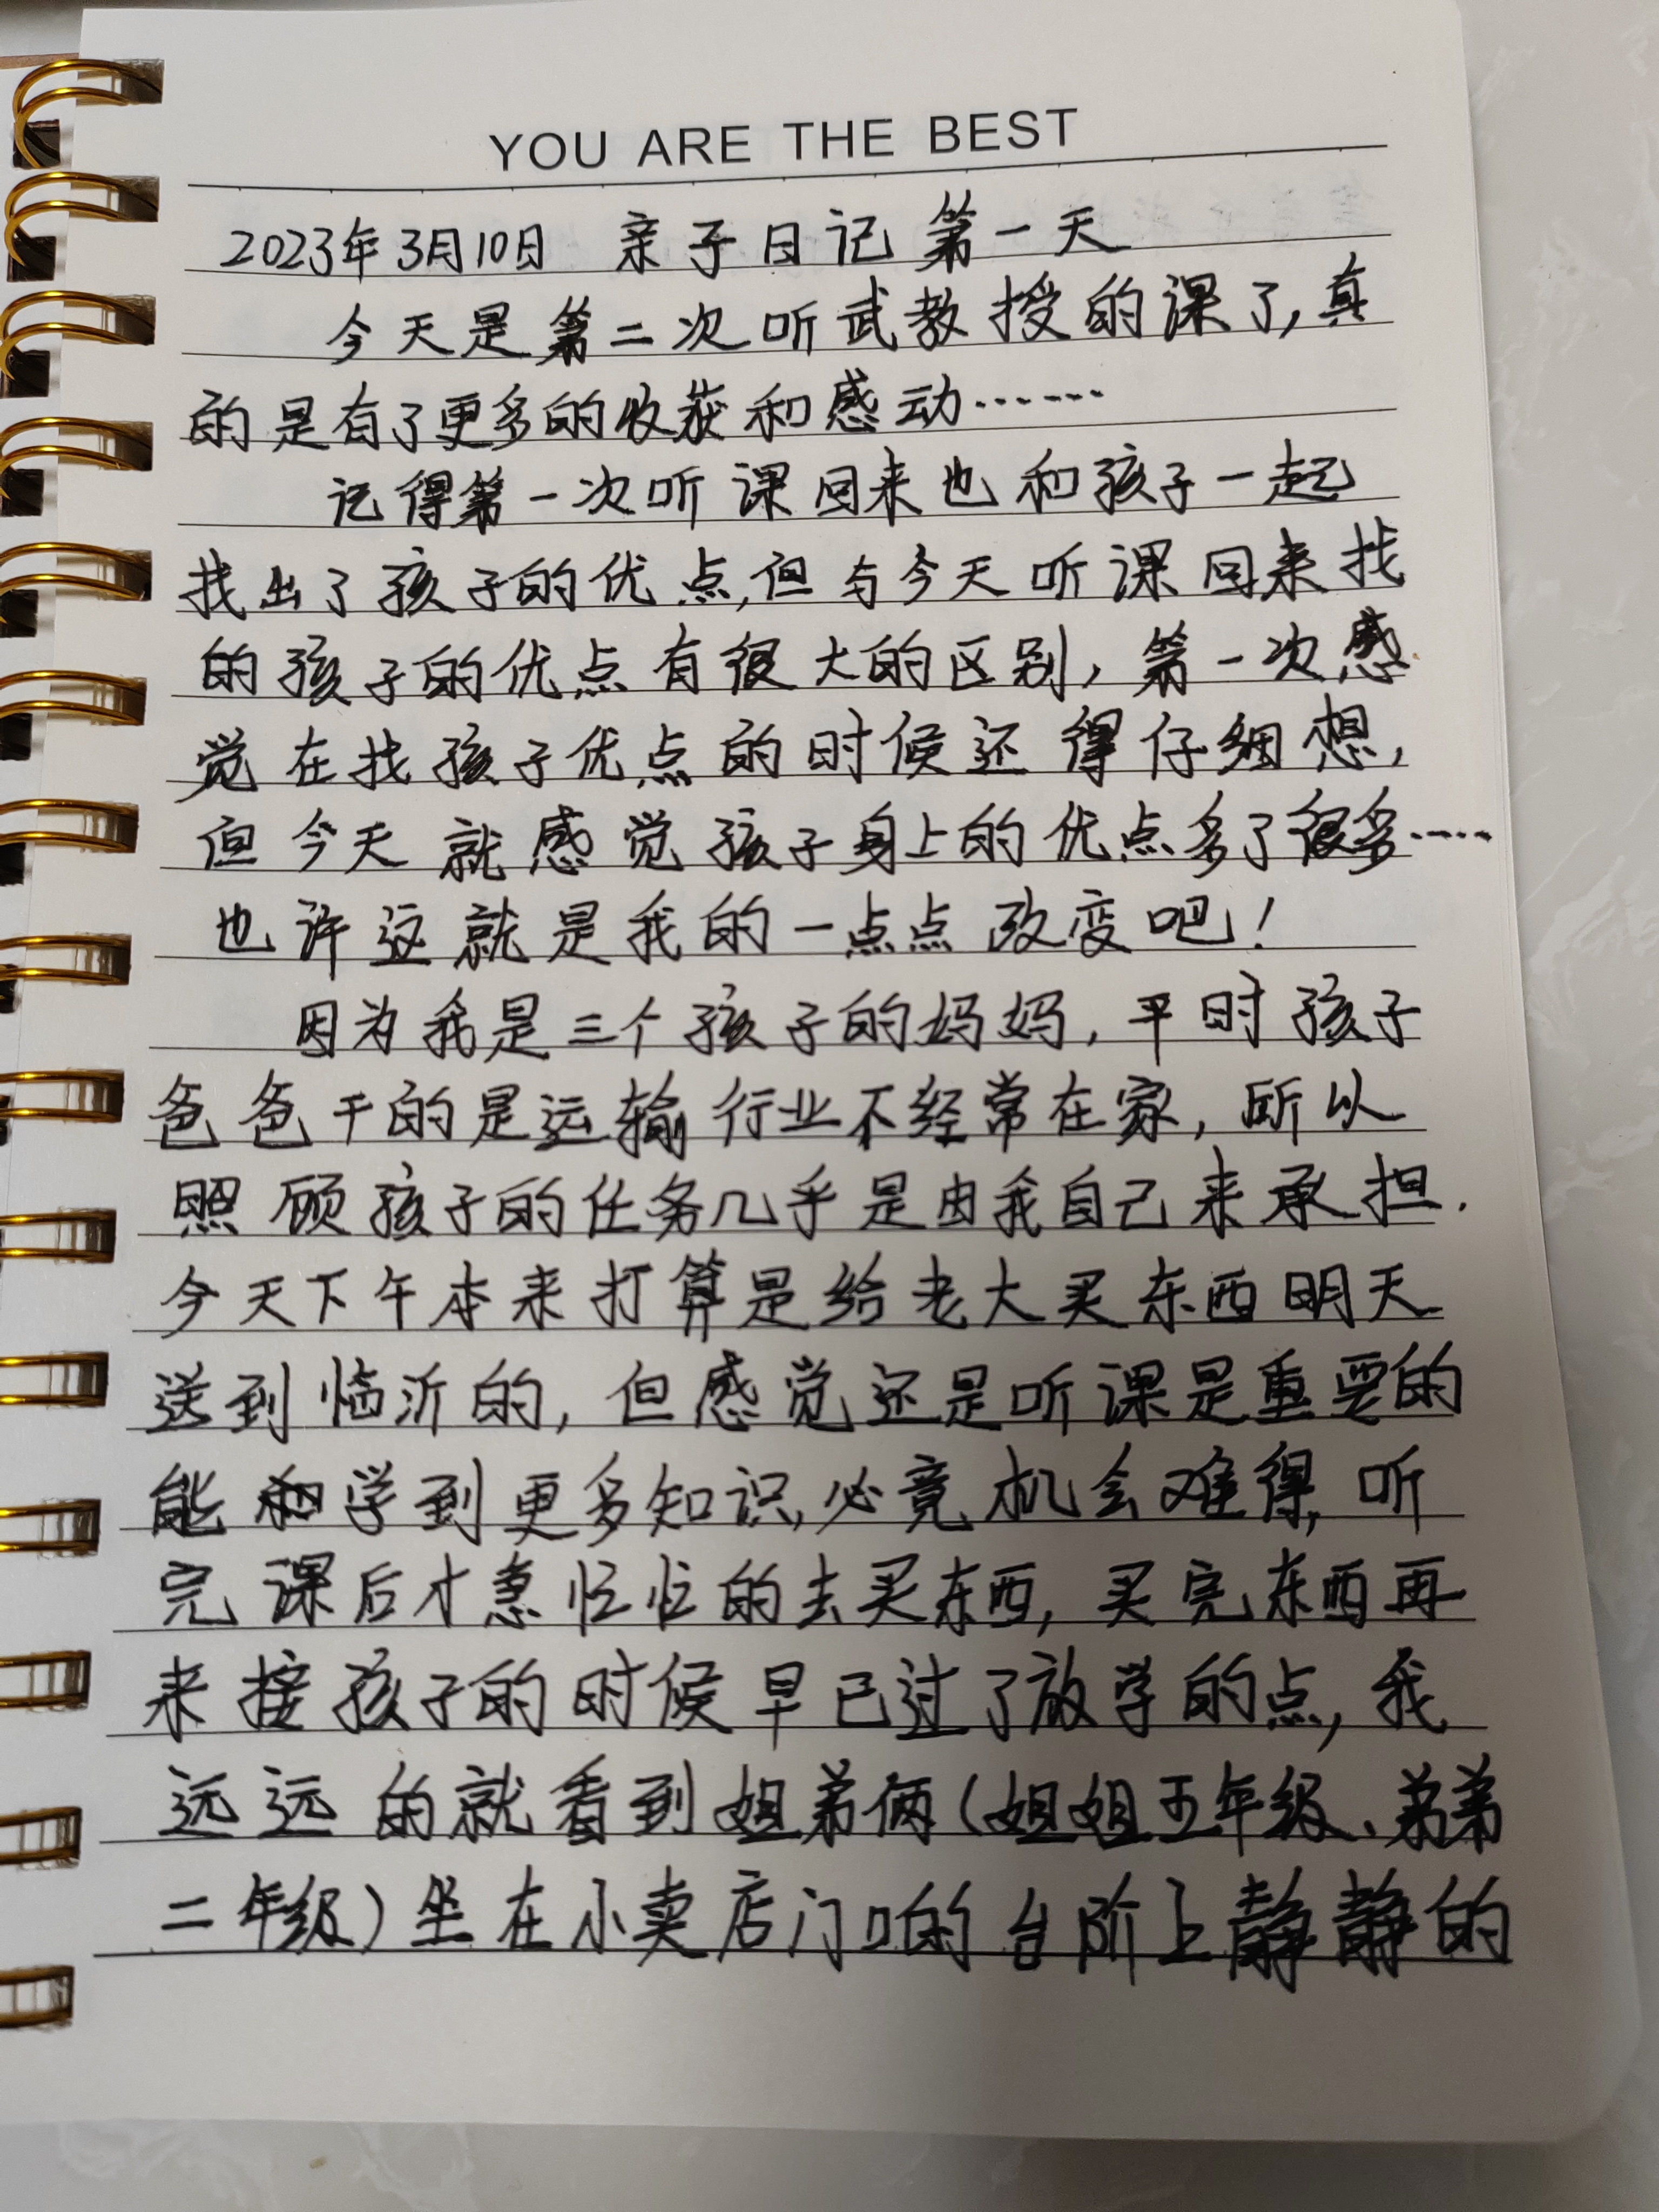 YOU ARE THE BEST
2023年3月10日 亲子日记 第一天
今天是第二次听武教授的课了,真
的是有了更多的收获和感动……
记得第一次听课回来也和孩子一起
找出了孩子的优点,但与今天听课回来找
的孩子的优点有很大的区别,第一次感
觉在找孩子优点的时候还得仔细想,
但今天就感觉孩子身上的优点多了很多……
也许这就是我的一点点改变吧!
因为我是三个孩子的妈妈,平时孩子
爸爸干的是运输行业不经常在家,所以
照顾孩子的任务几乎是由我自己来承担.
今天下午本来打算是给老大买东西明天
送到临沂的,但感觉还是听课是重要的
能学到更多知识,必竟机会难得,听
完课后才急忙忙的去买东西,买完东西再
来接孩子的时候早已过了放学的点,我
远远的就看到姐弟俩(姐姐五年级、弟弟
二年级)坐在小卖店门口的台阶上静静的